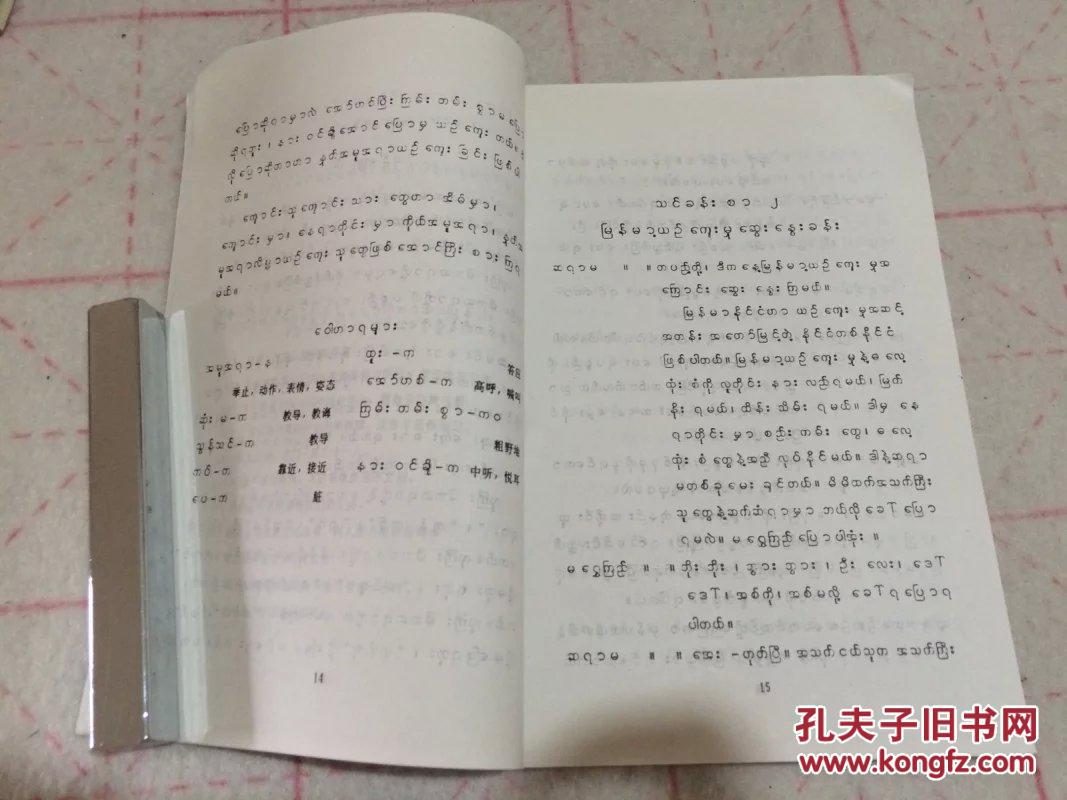 ပြောဆိုရာမှာလဲ အော်ဟစ်ပြီး ကြမ်းတမ်းစွာမပြော
ဆိုရဘူး၊ နားဝင်ချိုအောင်ပြောမှ ယဉ်ကျေးတယ်။
လိုပြောဆိုတာဟာ နှုတ်အမူအရာယဉ်ကျေးခြင်းဖြစ်ပါ
တယ်။
ကျောင်းသူကျောင်းသားတွေဟာ အိမ်မှာ၊
ကျောင်းမှာ၊ နေရာတိုင်းမှာ ကိုယ်အမူအရာ၊ နှုတ်အ
မူအရာလိမ္မာယဉ်ကျေးသူတွေဖြစ်အောင်ကြိုးစားကြရ
မယ်။
ဝေါဟာရများ
အမူအရာ-န ထူး-က 答应
举止，动作，表情，姿态 အော်ဟစ်-က 高呼，喊叫
ဆုံးမ-က 教导，教诲 ကြမ်းတမ်းစွာ-ကဝ
သွန်သင်-က 教导 粗野地
ကပ်-က 靠近，接近 နားဝင်ချို-က 中听，悦耳
ပေ-က 脏
14
သင်ခန်းစာ ၂
မြန်မာ့ယဉ်ကျေးမှုဆွေးနွေးခန်း
ဆရာမ ။ ။ တပည့်တို့၊ ဒီကနေ့မြန်မာ့ယဉ်ကျေးမှုအ
ကြောင်း ဆွေးနွေးကြမယ်။
မြန်မာနိုင်ငံဟာ ယဉ်ကျေးမှုအဆင့်
အတန်း အတော်မြင့်တဲ့ နိုင်ငံတစ်နိုင်ငံ
ဖြစ်ပါတယ်။ မြန်မာ့ယဉ်ကျေးမှုနဲ့ဓလေ့
ထုံးစံကို လူတိုင်းနားလည်ရမယ်၊ မြတ်
နိုးရမယ်၊ ထိန်းသိမ်းရမယ်။ ဒါမှ နေ
ရာတိုင်းမှာ စည်းကမ်းတွေ၊ ဓလေ့
ထုံးစံတွေနဲ့အညီ လုပ်နိုင်မယ်။ ဒါနဲ့ဆရာ
မတစ်ခုမေးချင်တယ်။ မိမိထက်အသက်ကြီး
သူတွေနဲ့ဆက်ဆံရာမှာ ဘယ်လိုခေါ်ပြော
ရမလဲ။ မရွှေကြည်ပြောပါအုံး။
မရွှေကြည် ။ ။ ဘိုးဘိုး၊ ဘွားဘွား၊ ဦးလေး၊ ဒေါ်
ဒေါ်၊ အစ်ကို၊ အစ်မလို့ ခေါ်ရပြောရ
ပါတယ်။
ဆရာမ ။ ။ အေး-ဟုတ်ပြီ။ အသက်ငယ်သူက အသက်ကြီး
15
孔夫子旧书网
www.kongfz.com